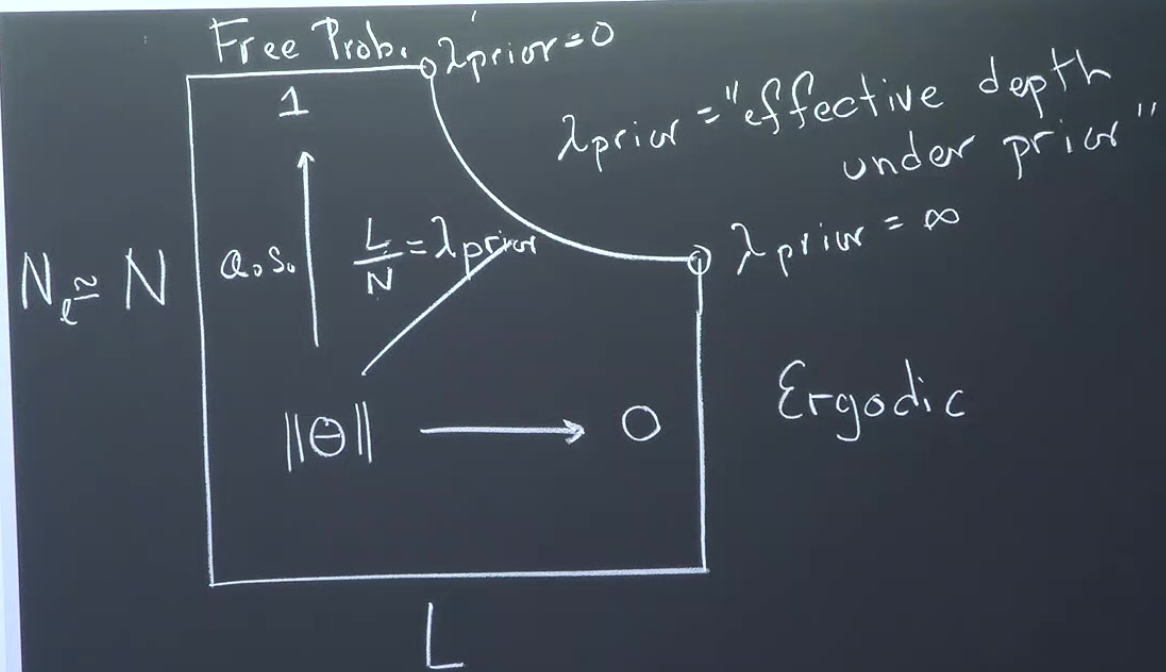 Free Prob. λprior = 0
1
λprior = "effective depth
under prior"
N_ℓ ≃ N
a.s.
L/N = λprior
λprior = ∞
||Θ|| → 0
Ergodic
L